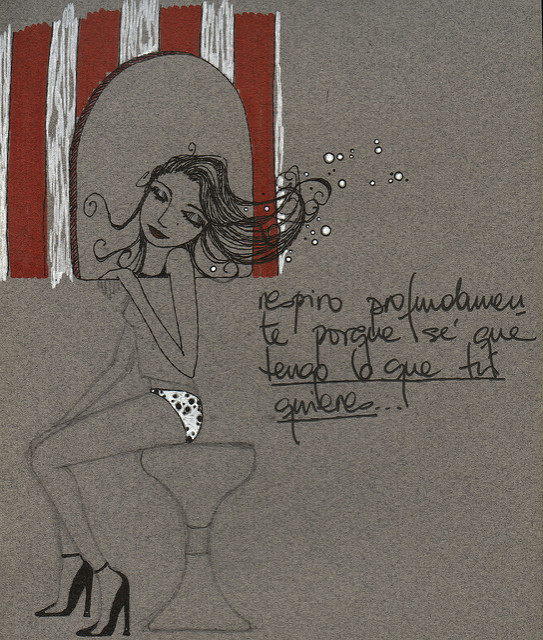 respiro profundamen
te porque sé que
tengo lo que tú
quieres...